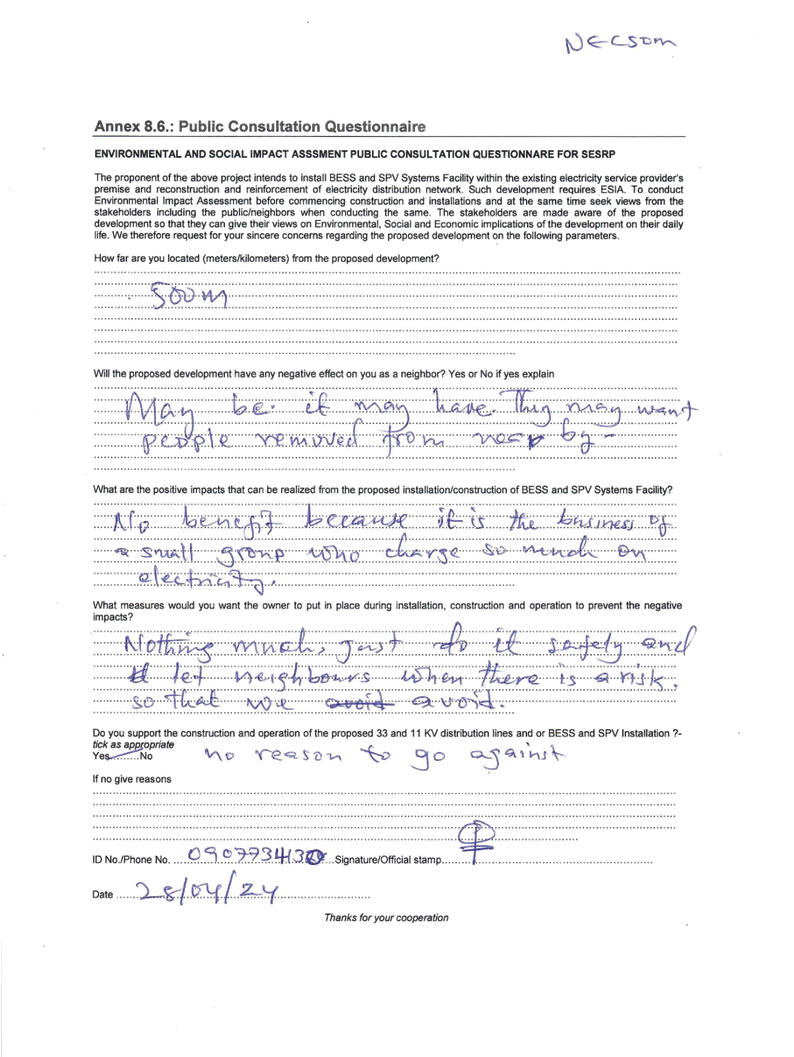 NECSOM
Annex 8.6.: Public Consultation Questionnaire
ENVIRONMENTAL AND SOCIAL IMPACT ASSSMENT PUBLIC CONSULTATION QUESTIONNARE FOR SESRP
The proponent of the above project intends to install BESS and SPV Systems Facility within the existing electricity service provider's
premise and reconstruction and reinforcement of electricity distribution network. Such development requires ESIA. To conduct
Environmental Impact Assessment before commencing construction and installations and at the same time seek views from the
stakeholders including the public/neighbors when conducting the same. The stakeholders are made aware of the proposed
development so that they can give their views on Environmental, Social and Economic implications of the development on their daily
life. We therefore request for your sincere concerns regarding the proposed development on the following parameters.
How far are you located (meters/kilometers) from the proposed development?
500 m
Will the proposed development have any negative effect on you as a neighbor? Yes or No if yes explain
May be. it may have. They may want
people removed from near by -
What are the positive impacts that can be realized from the proposed installation/construction of BESS and SPV Systems Facility?
No benefit because it is the business of
a small group who charge so much on
electricity.
What measures would you want the owner to put in place during installation, construction and operation to prevent the negative
impacts?
Nothing much, just do it safety and
let neighbours when there is a risk.
so that we avoid avoid.
Do you support the construction and operation of the proposed 33 and 11 KV distribution lines and or BESS and SPV Installation ?-
tick as appropriate
Yes..........No no reason to go against
If no give reasons
ID No./Phone No. ... Signature/Official stamp......
Date ...... 28/04/24
Thanks for your cooperation